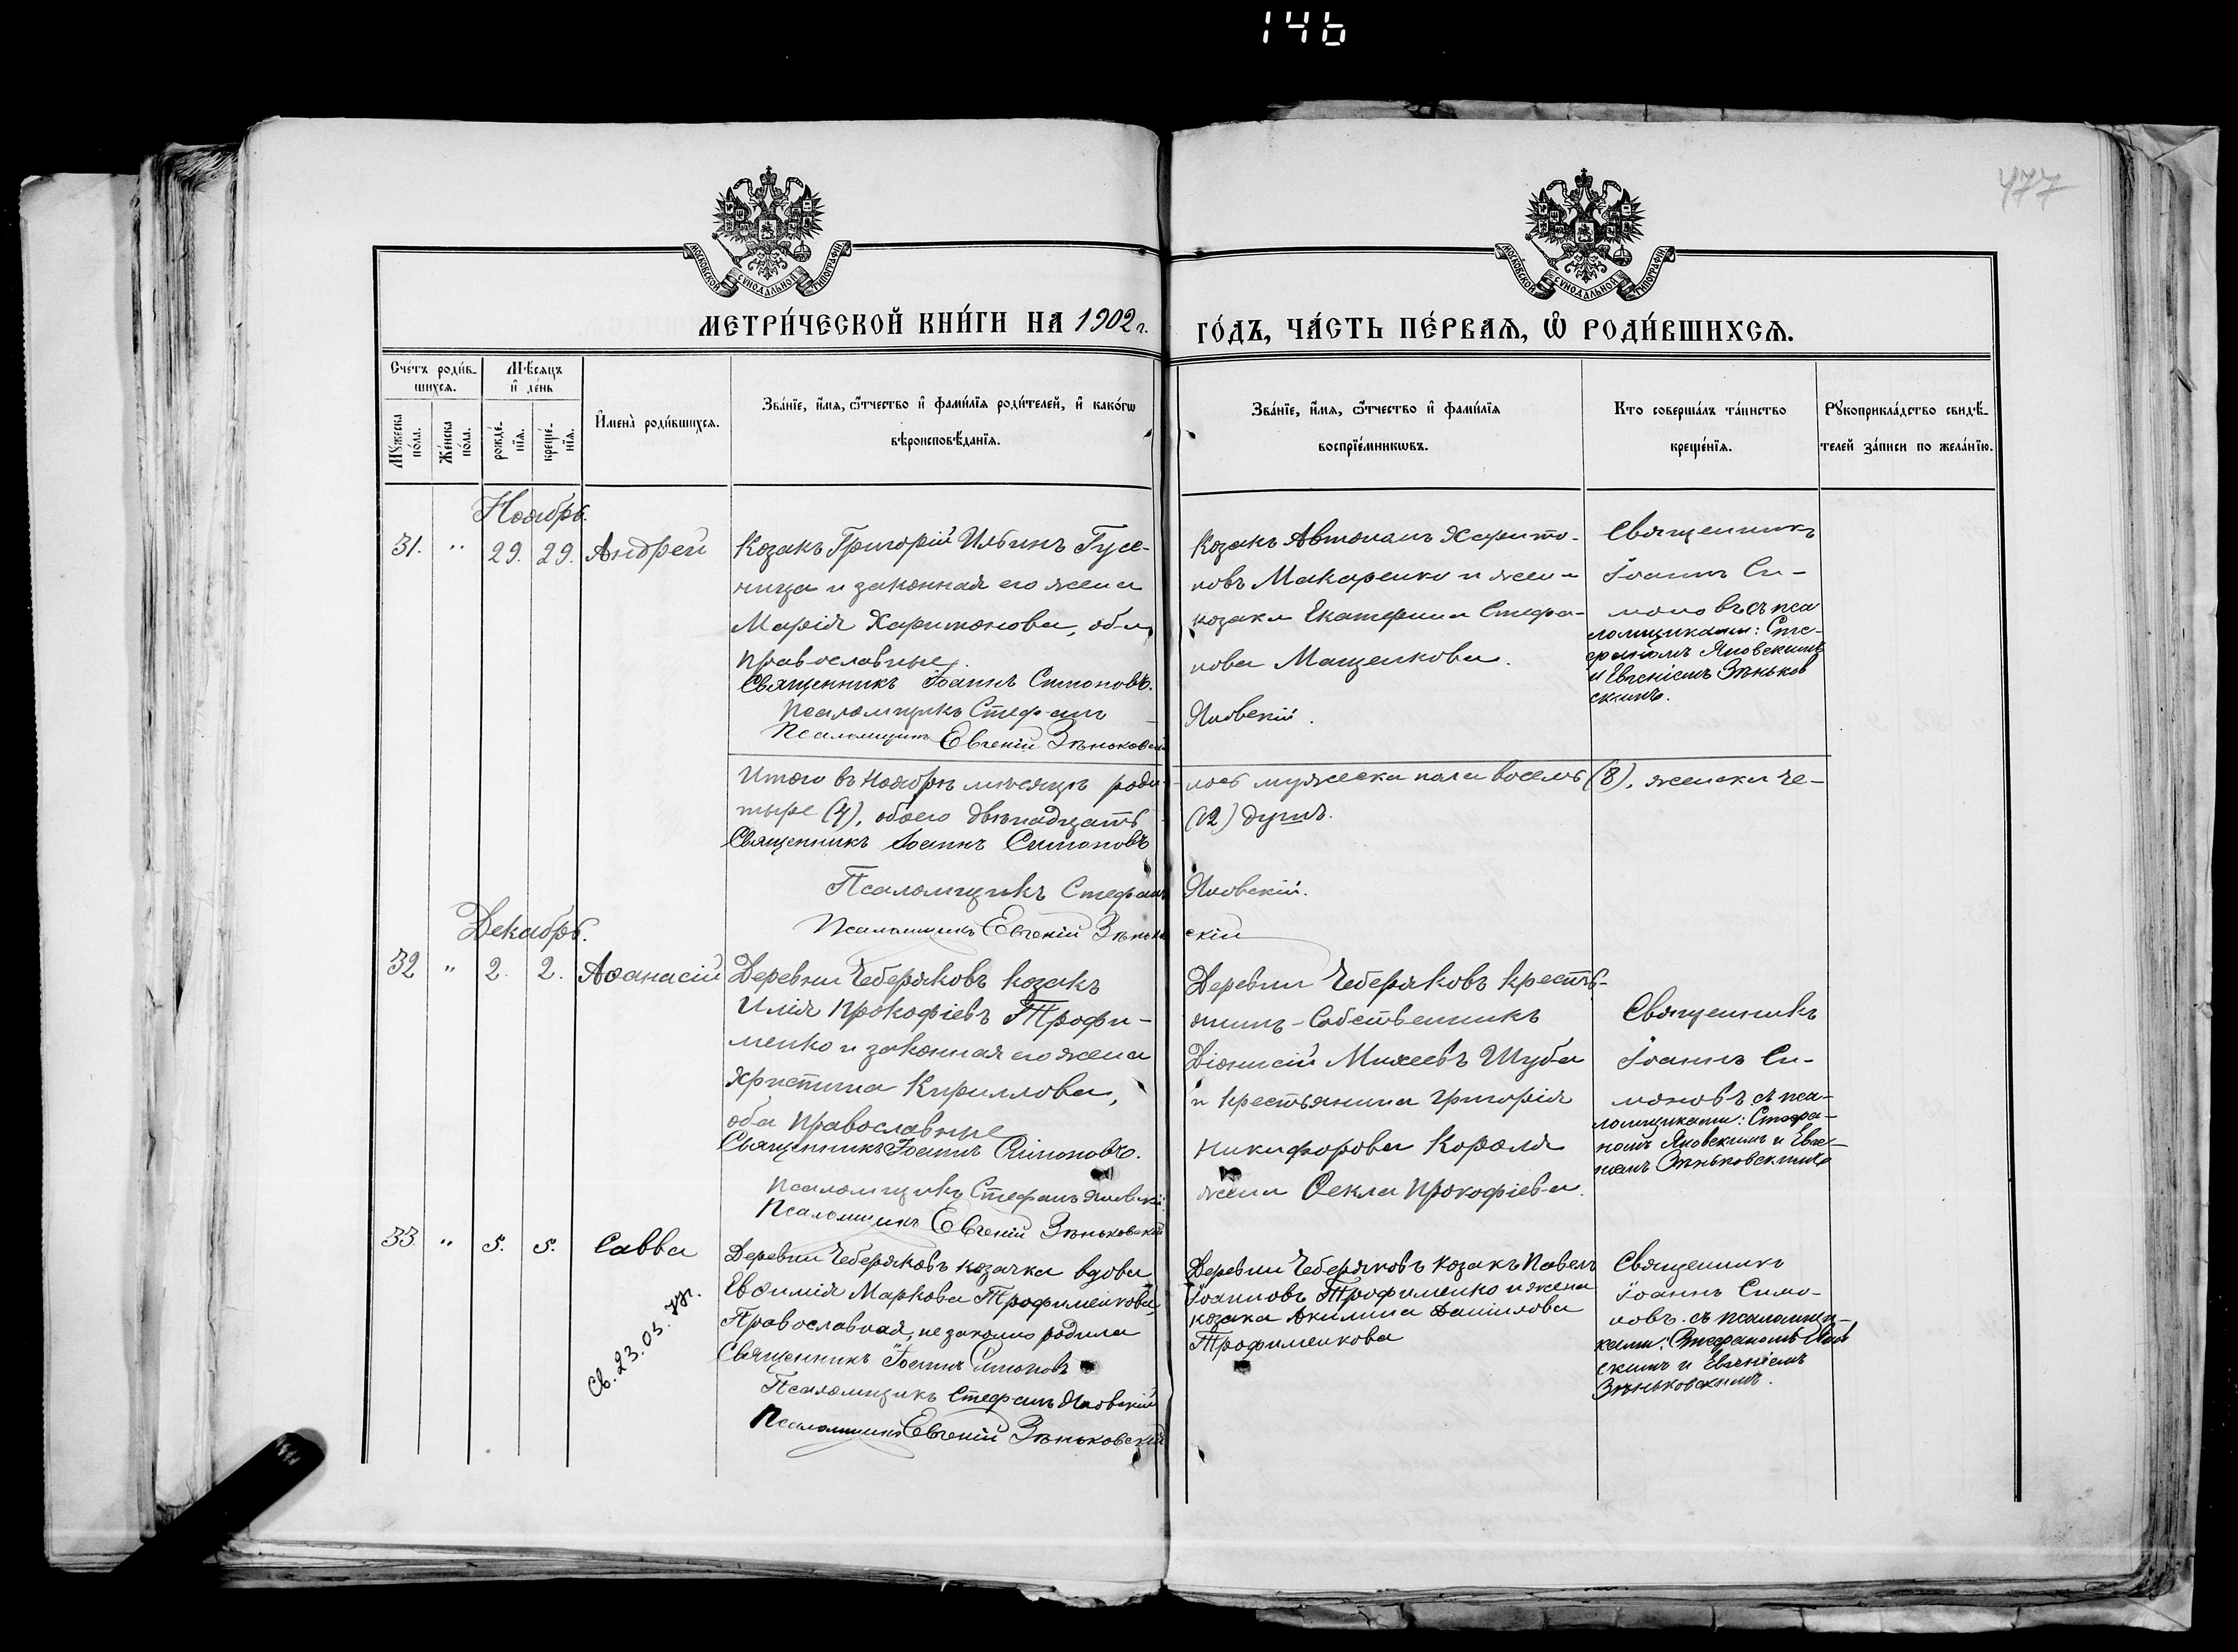 146
477
МОСКОВСКОЙ СѴНОДАЛЬНОЙ ТИПОГРАФІИ
МОСКОВСКОЙ СѴНОДАЛЬНОЙ ТИПОГРАФІИ
МЕТРИ́ЧЕСКОЙ КНИ́ГИ НА 1902 г.
ГО́ДЪ, ЧА́СТЬ ПЕ́РВАѦ, Ѡ҆ РОДИ́ВШИХСѦ.
Сче́тъ роди́в-
шихсѧ.
Мѣ́сѧцъ
и҆ де́нь
Мꙋ́жеска
по́ла.
Же́нска
по́ла.
рожде́-
нїѧ.
креще́-
нїѧ.
И҆мена̀ роди́вшихсѧ.
Зва́нїе, и҆́мѧ, ѻ҆́тчество и҆ фами́лїѧ роди́телей, и҆ како́гѡ
вѣроисповѣ́данїѧ.
Зва́нїе, и҆́мѧ, ѻ҆́тчество и҆ фами́лїѧ
воспрїе́мникѡвъ.
Кто соверша́лъ та́инство
креще́нїѧ.
Рꙋкоприкла́дство свидѣ́-
телей за́писи по жела́нїю.
Ноябрь.
31. " 29. 29. Андрей
Козакъ Григорій Ильинъ Гусе-
ница и законная его жена
Марія Харитонова, оба
православные.
Священникъ Іоаннъ Симоновъ.
Псаломщикъ Стефанъ
Псаломщикъ Евгеній Зѣньковскій
Козакъ Автономъ Харито-
новъ Макаренко и жена
козака Екатерина Стефа-
нова Мащенкова.
Яновскій.
Священникъ
Іоаннъ Си-
моновъ съ пса
ломщиками: Сте-
фаномъ Яновскимъ
и Евгеніемъ Зѣньков
скимъ.
Итого въ Ноябрѣ мѣсяцѣ роди-
лось мужеска пола восемь (8), женска че-
тыре (4), обоего двѣнадцать
(12) душъ.
Священникъ Іоаннъ Симоновъ
Псаломщикъ Стефанъ
Яновскій.
Псаломщикъ Евгеній Зѣньков
скій
Декабрь.
32 " 2. 2. Аѳанасій
Деревни Чеберяковъ козакъ
Илія Прокофіевъ Трофи-
менко и законная его жена
Христина Кириллова,
оба православные
Священникъ Іоаннъ Симоновъ.
Псаломщикъ Стефанъ Яновскій.
Псаломщикъ Евгеній Зѣньковскій
Деревни Чеберяковъ кресть-
янинъ-собственникъ
Діонисій Михеевъ Шуба
и крестьянина Григорія
Никифорова Короля
жена Ѳекла Прокофіева.
Священникъ
Іоаннъ Си-
моновъ съ пса-
ломщиками: Стефа-
номъ Яновскимъ и Евге-
ніемъ Зѣньковскимъ
33 " 5. 5. Савва
Св. 23.03.
Деревни Чеберяковъ козачка вдова
Евѳимія Маркова Трофименкова,
Православная, незаконно родила
Священникъ Іоаннъ Симоновъ
Псаломщикъ Стефанъ Яновскій
Псаломщикъ Евгеній Зѣньковскій
Деревни Чеберяковъ козакъ Павелъ
Іоанновъ Трофименко и жена
козака Акилина Даніилова
Трофименкова
Священникъ
Іоаннъ Симо-
новъ съ псаломщи-
ками: Стефаномъ Янов
скимъ и Евгеніемъ
Зѣньковскимъ.